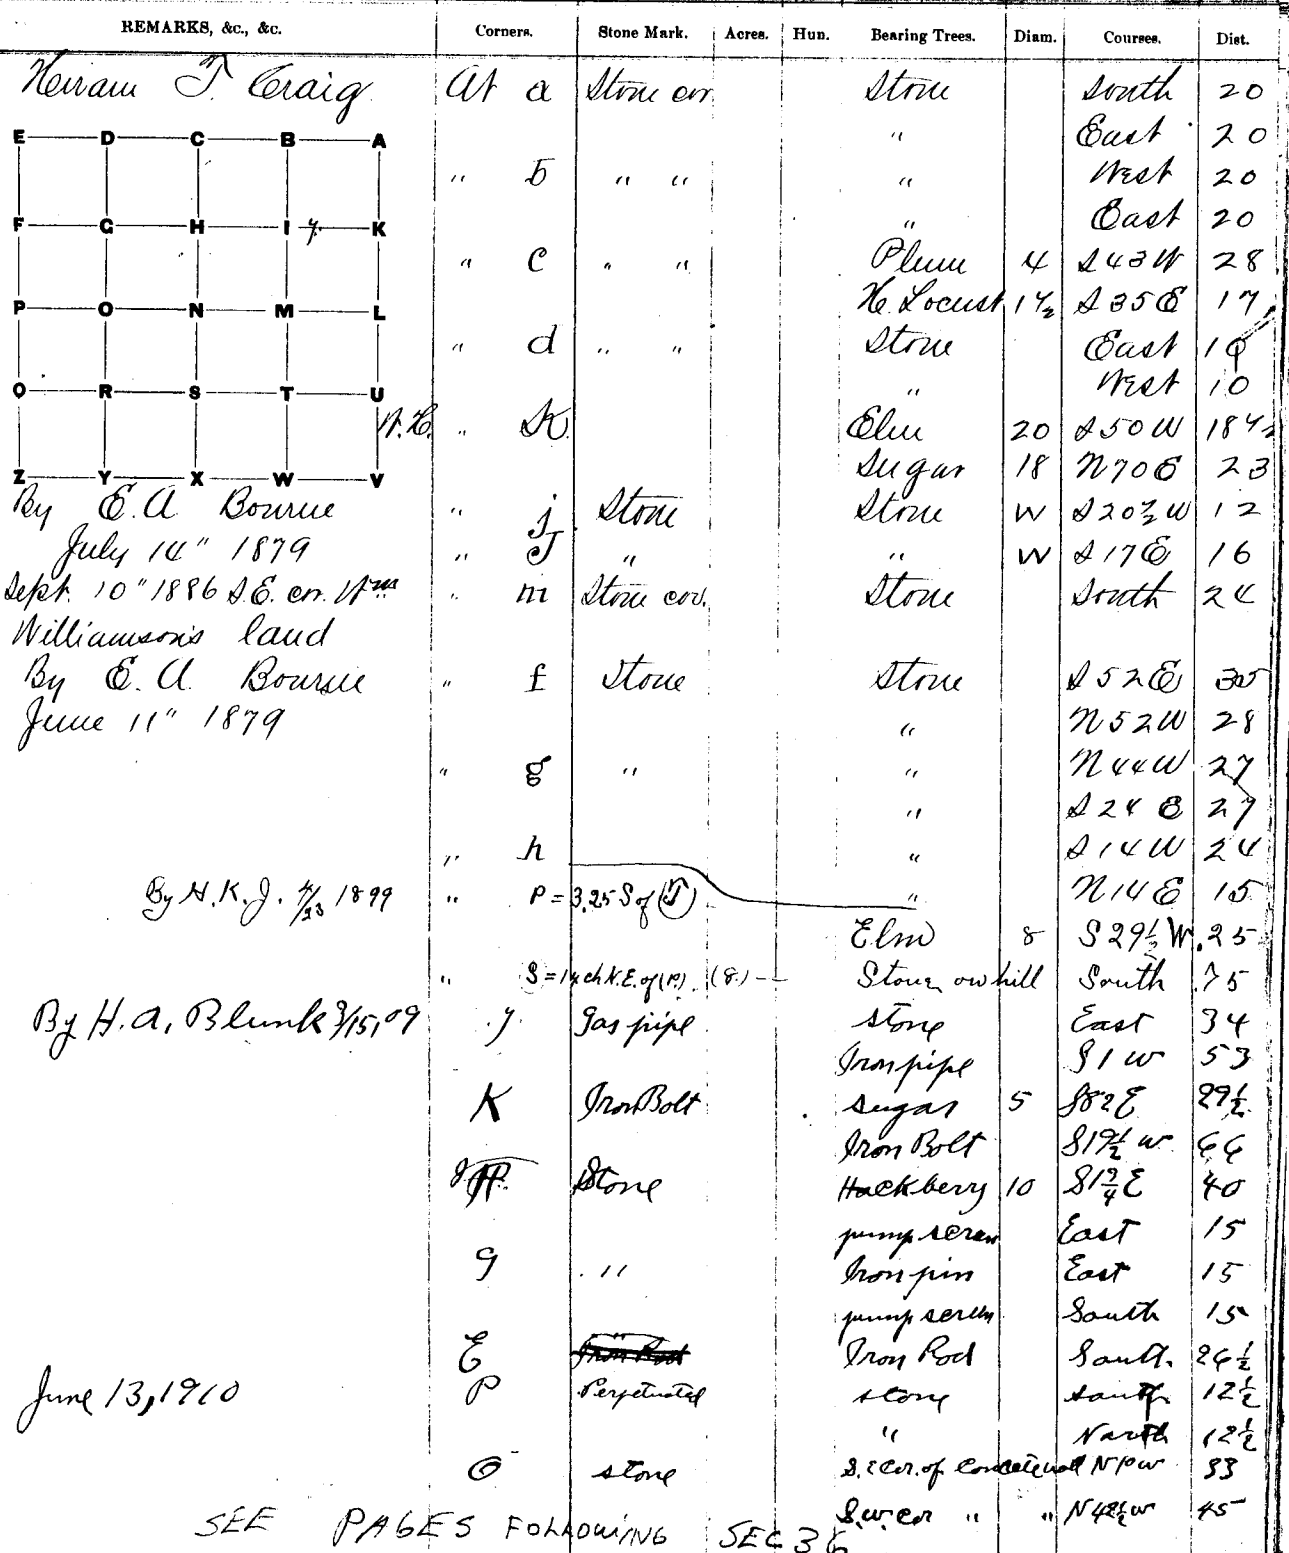 REMARKS, &c., &c. Corners. Stone Mark. Acres. Hun. Bearing Trees. Diam. Courses. Dist.
Hiram T. Craig At a Stone cor Stone South 20
E D C B A " East 20
" b " " " West 20
F G H I y. K " East 20
" c " " Plum 4 S 43 W 28
P O N M L H. Locust 1 1/2 S 35 E 17
" d " " Stone East 10
Q R S T U " West 10
W.H. " K Elm 20 S 50 W 18 1/2
Z Y X W V Sugar 18 N 70 E 23
By E. A. Bourne " j Stone Stone W S 20 1/2 W 12
July 14" 1879 " J " " W S 17 E 16
Sept. 10" 1886 S.E. cor. Wm " m Stone cor. Stone South 24
Williamson's land
By E. A. Bourne " f Stone Stone S 52 E 35
June 11" 1879 " N 52 W 28
" g " " N 44 W 27
" S 24 E 27
" h " S 14 W 24
By H. K. J. 4/23 1899 " P = 3.25 S of (J) " N 14 E 15
Elm 8 S 29 1/2 W .25
" S = ch N.E. of (P.) (8.) Stone, on hill South .75
By H. A. Blunk 3/15, 09 y Gas pipe stone East 34
Iron pipe S 1 W 53
K Iron Bolt sugar 5 S 82 E 29 1/2
Iron Bolt S 19 1/2 W 66
Stone Hackberry 10 S 1 3/4 E 40
pump screw East 15
g " Iron pin East 15
pump screw South 15
E Iron Rod Iron Rod South 26 1/2
June 13, 1910 P Perpetuated stone South 12 1/2
" North 12 1/2
O stone S.E Cor. of N W 33
S.W. cor " " N 42 1/2 W 45
SEE PAGES FOLLOWING SEC 36